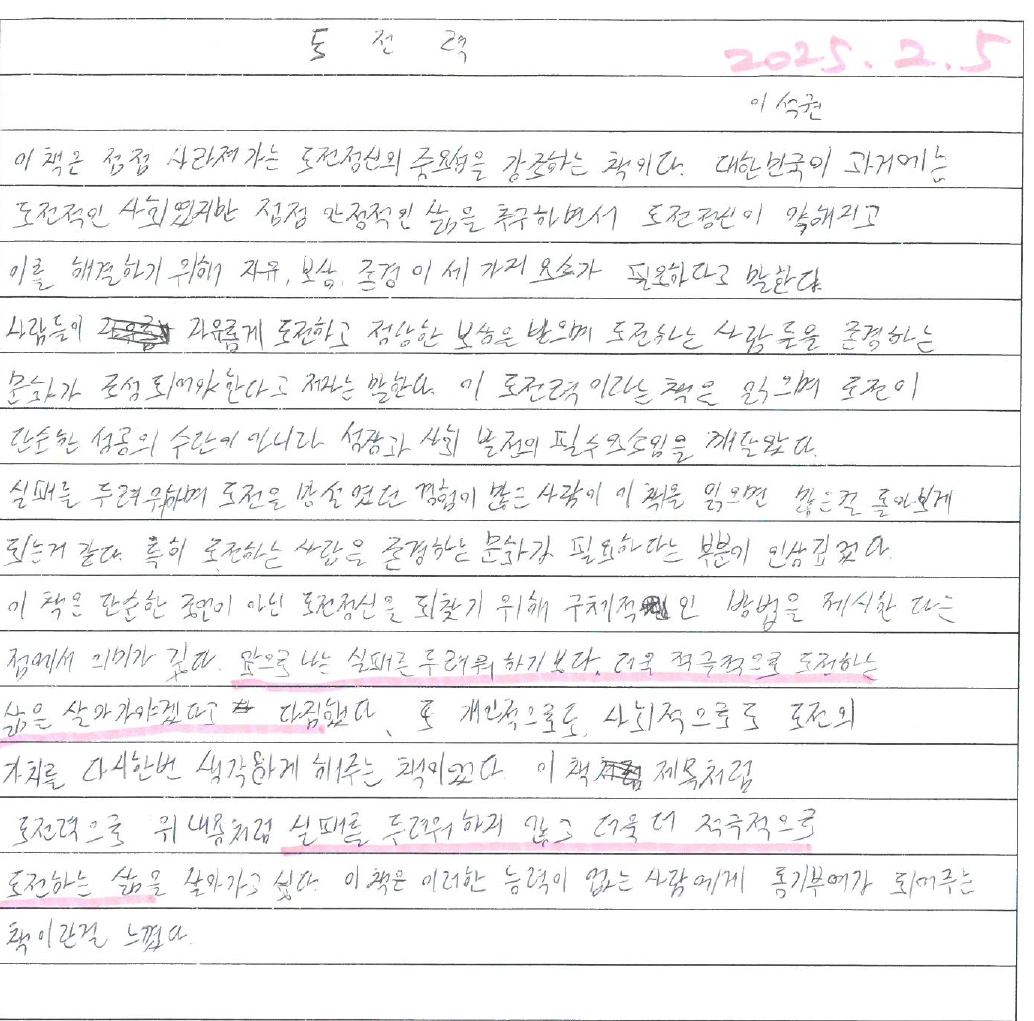 도 전 력
2025. 2. 5
이석권
이 책은 점점 사라져가는 도전정신의 중요성을 강조하는 책이다. 대한민국이 과거에는
도전적인 사회였지만 점점 안정적인 삶을 추구하면서 도전정신이 약해지고
이를 해결하기 위해 자유, 보상, 존경 이 세 가지 요소가 필요하다고 말한다.
사람들이 자유롭게 도전하고 정당한 보상을 받으며 도전하는 사람들을 존경하는
문화가 조성되어야한다고 저자는 말한다. 이 도전력이라는 책은 읽으며 도전이
단순한 성공의 수단이 아니라 성장과 사회 발전의 필수요소임을 깨달았다.
실패를 두려워하며 도전을 망설였던 경험이 많은 사람이 이 책을 읽으면 많은걸 돌아보게
되는거 같다. 특히 도전하는 사람을 존경하는 문화가 필요하다는 부분이 인상깊었다.
이 책은 단순한 조언이 아닌 도전정신을 되찾기 위해 구체적인 방법을 제시한 다는
점에서 의미가 깊다. 앞으로 나는 실패를 두려워 하기 보다, 더욱 적극적으로 도전하는
삶을 살아가야겠다고 다짐했다. 또 개인적으로도, 사회적으로도 도전의
가치를 다시한번 생각하게 해주는 책이었다. 이 책 제목처럼
도전력으로 위 내용처럼 실패를 두려워 하지 않고 더욱 더 적극적으로
도전하는 삶을 살아가고 싶다. 이 책은 이러한 능력이 없는 사람에게 동기부여가 되어주는
책이란걸 느꼈다.